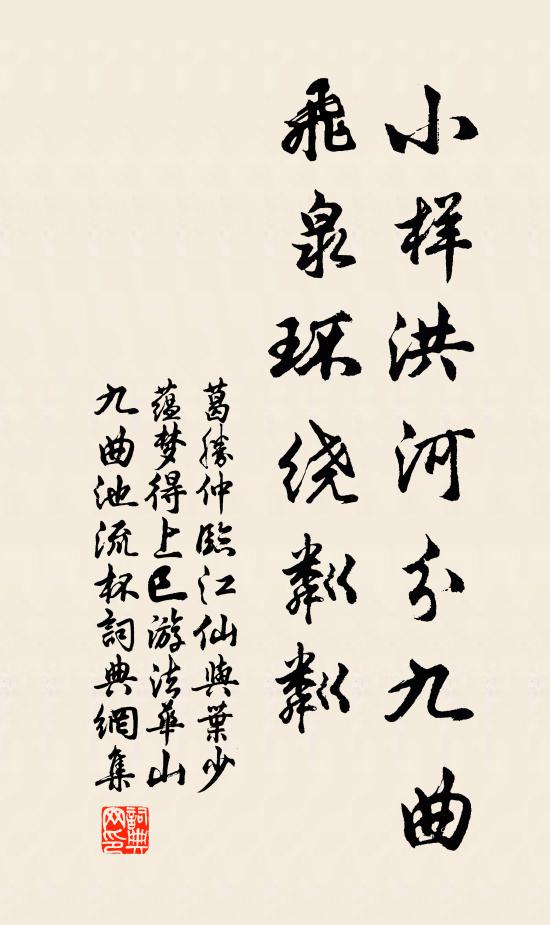 小样洪河分九曲
飛泉环绕粼粼
葛勝仲臨江仙與葉少
蕴梦得上巳游法華山
九曲池流杯詞典網集
詞典网印